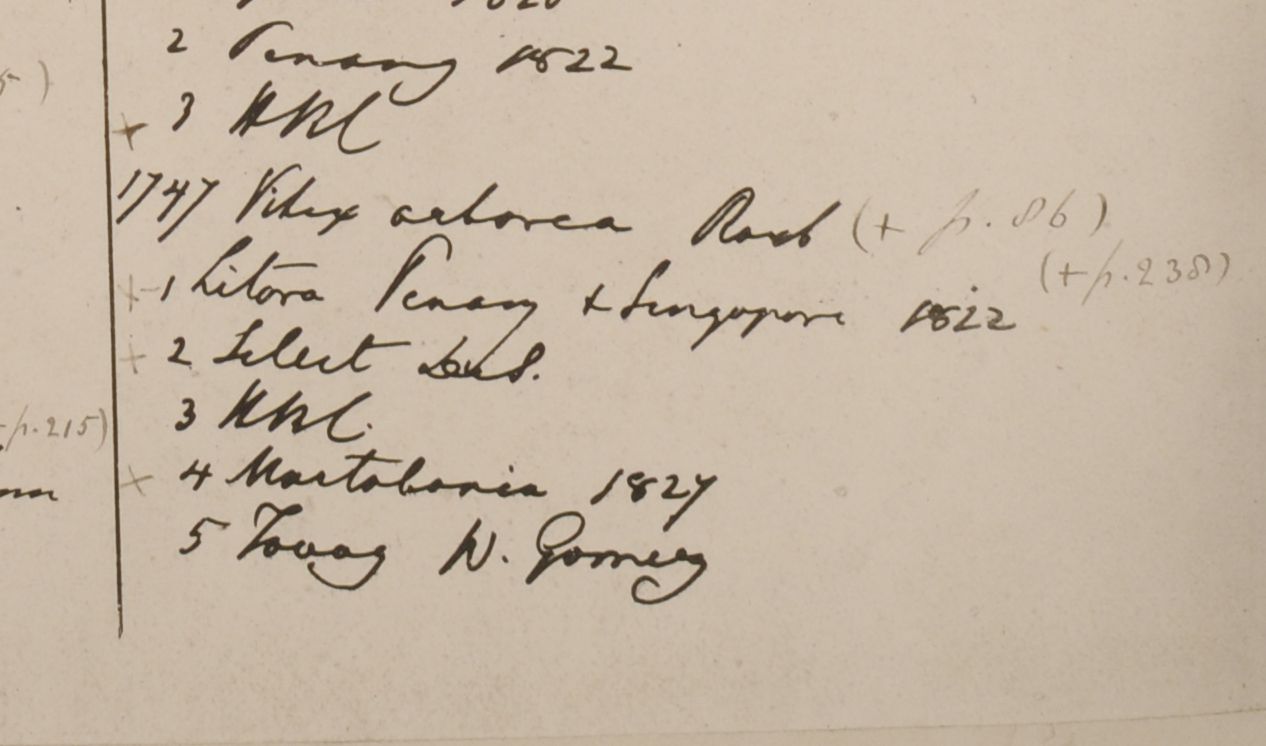 1820
2 Penang 1822
5)
+ 3 HBC
1747 Vitex arborea Roxb (+ p. 86)
(+ p. 238)
+ 1 Litora Penang & Singapore 1822
+ 2 Silhet
3 HBC.
p. 215)
+ 4 Martabania 1827
5 Tavoy W. Gomez